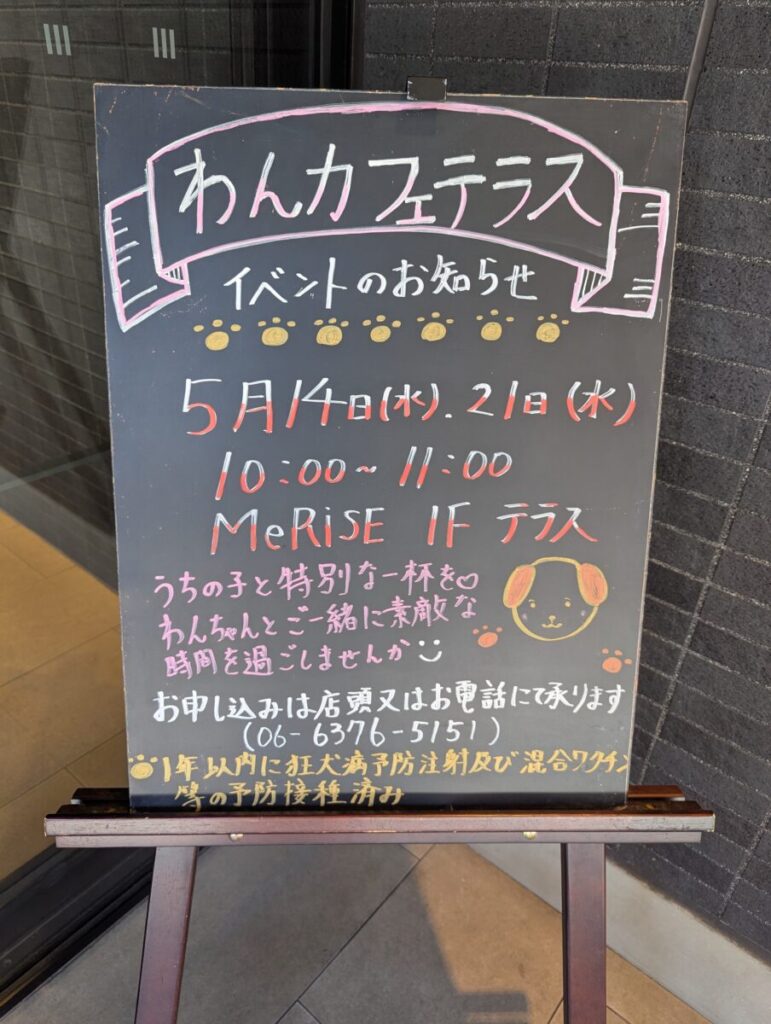 わんカフェテラス
イベントのお知らせ
5月14日(水).21日(水)
10:00~11:00
MeRiSE 1F テラス
うちの子と特別な一杯を♡
わんちゃんとご一緒に素敵な
時間を過ごしませんか
お申し込みは店頭又はお電話にて承ります
(06-6376-5151)
1年以内に狂犬病予防注射及び混合ワクチン
等の予防接種済み